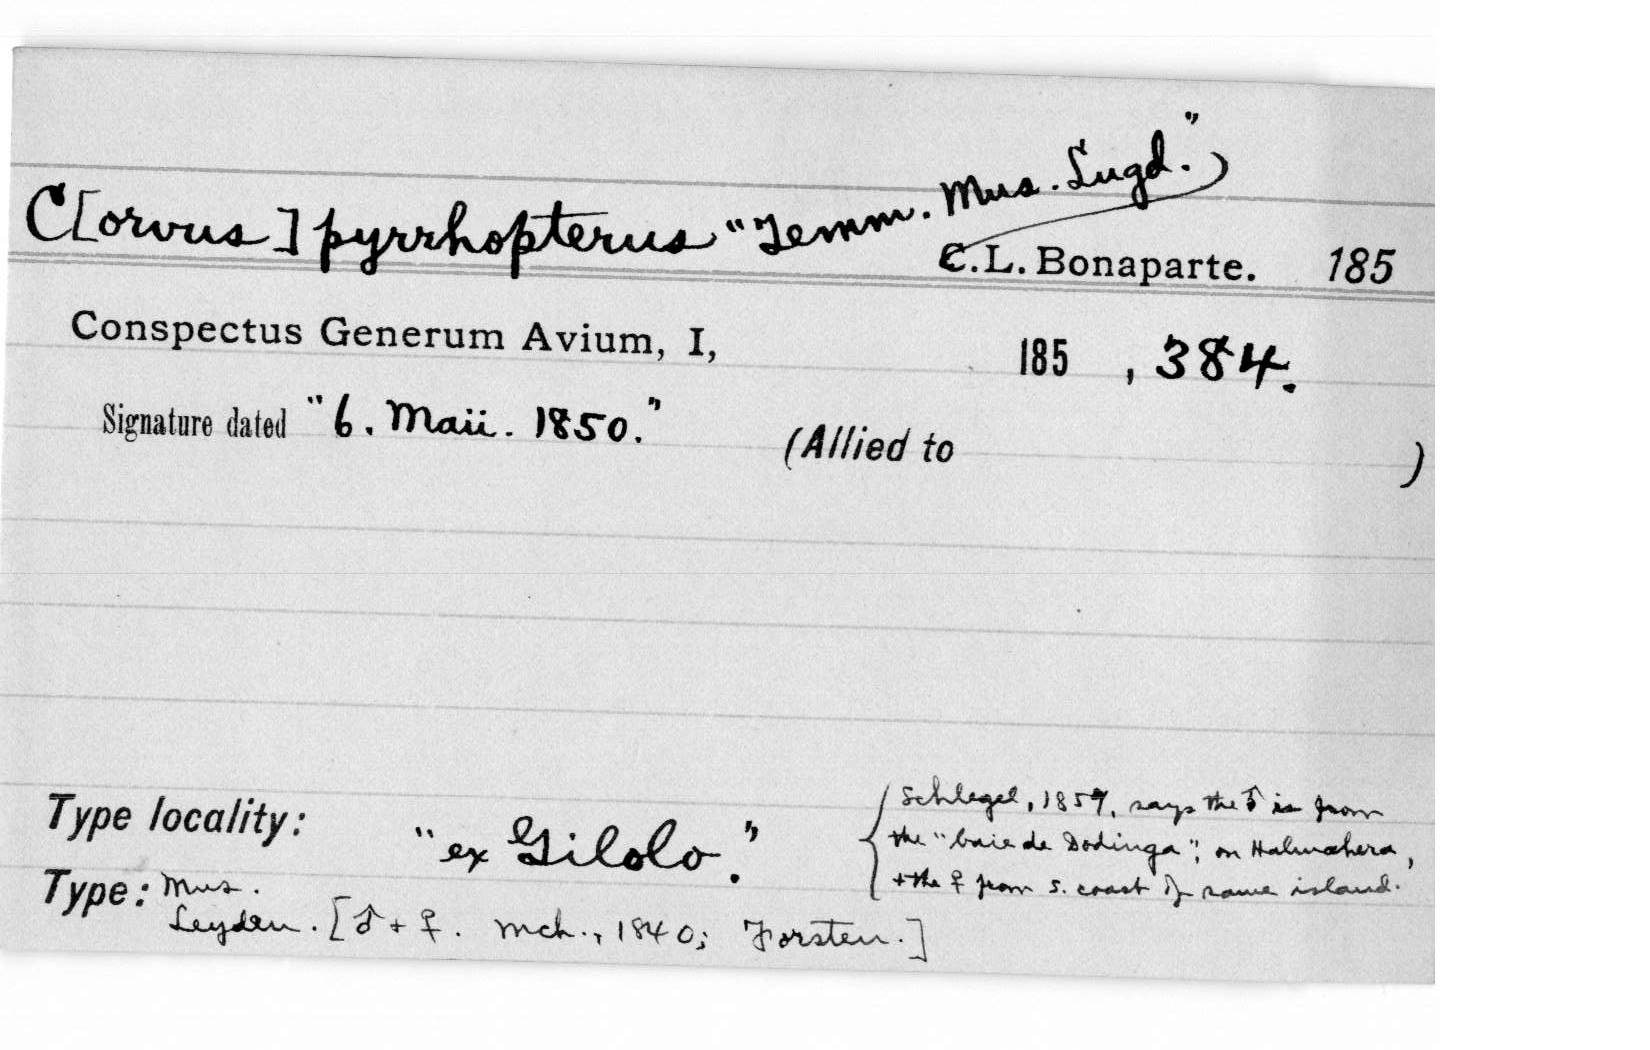 C[orvus] pyrrhopterus "Temm. Mus. Lugd.")
C.L. Bonaparte. 185
Conspectus Generum Avium, I, 185 , 384.
Signature dated "6. Maii. 1850." (Allied to )
Type locality: "ex Gilolo."
{Schlegel, 1859, says the ♂ is from
the "baie de Dodinga", on Halmahera,
+ the ♀ from S. coast of same island.
Type: Mus.
Leyden. [♂ + ♀. Mch., 1840; Forsten.]